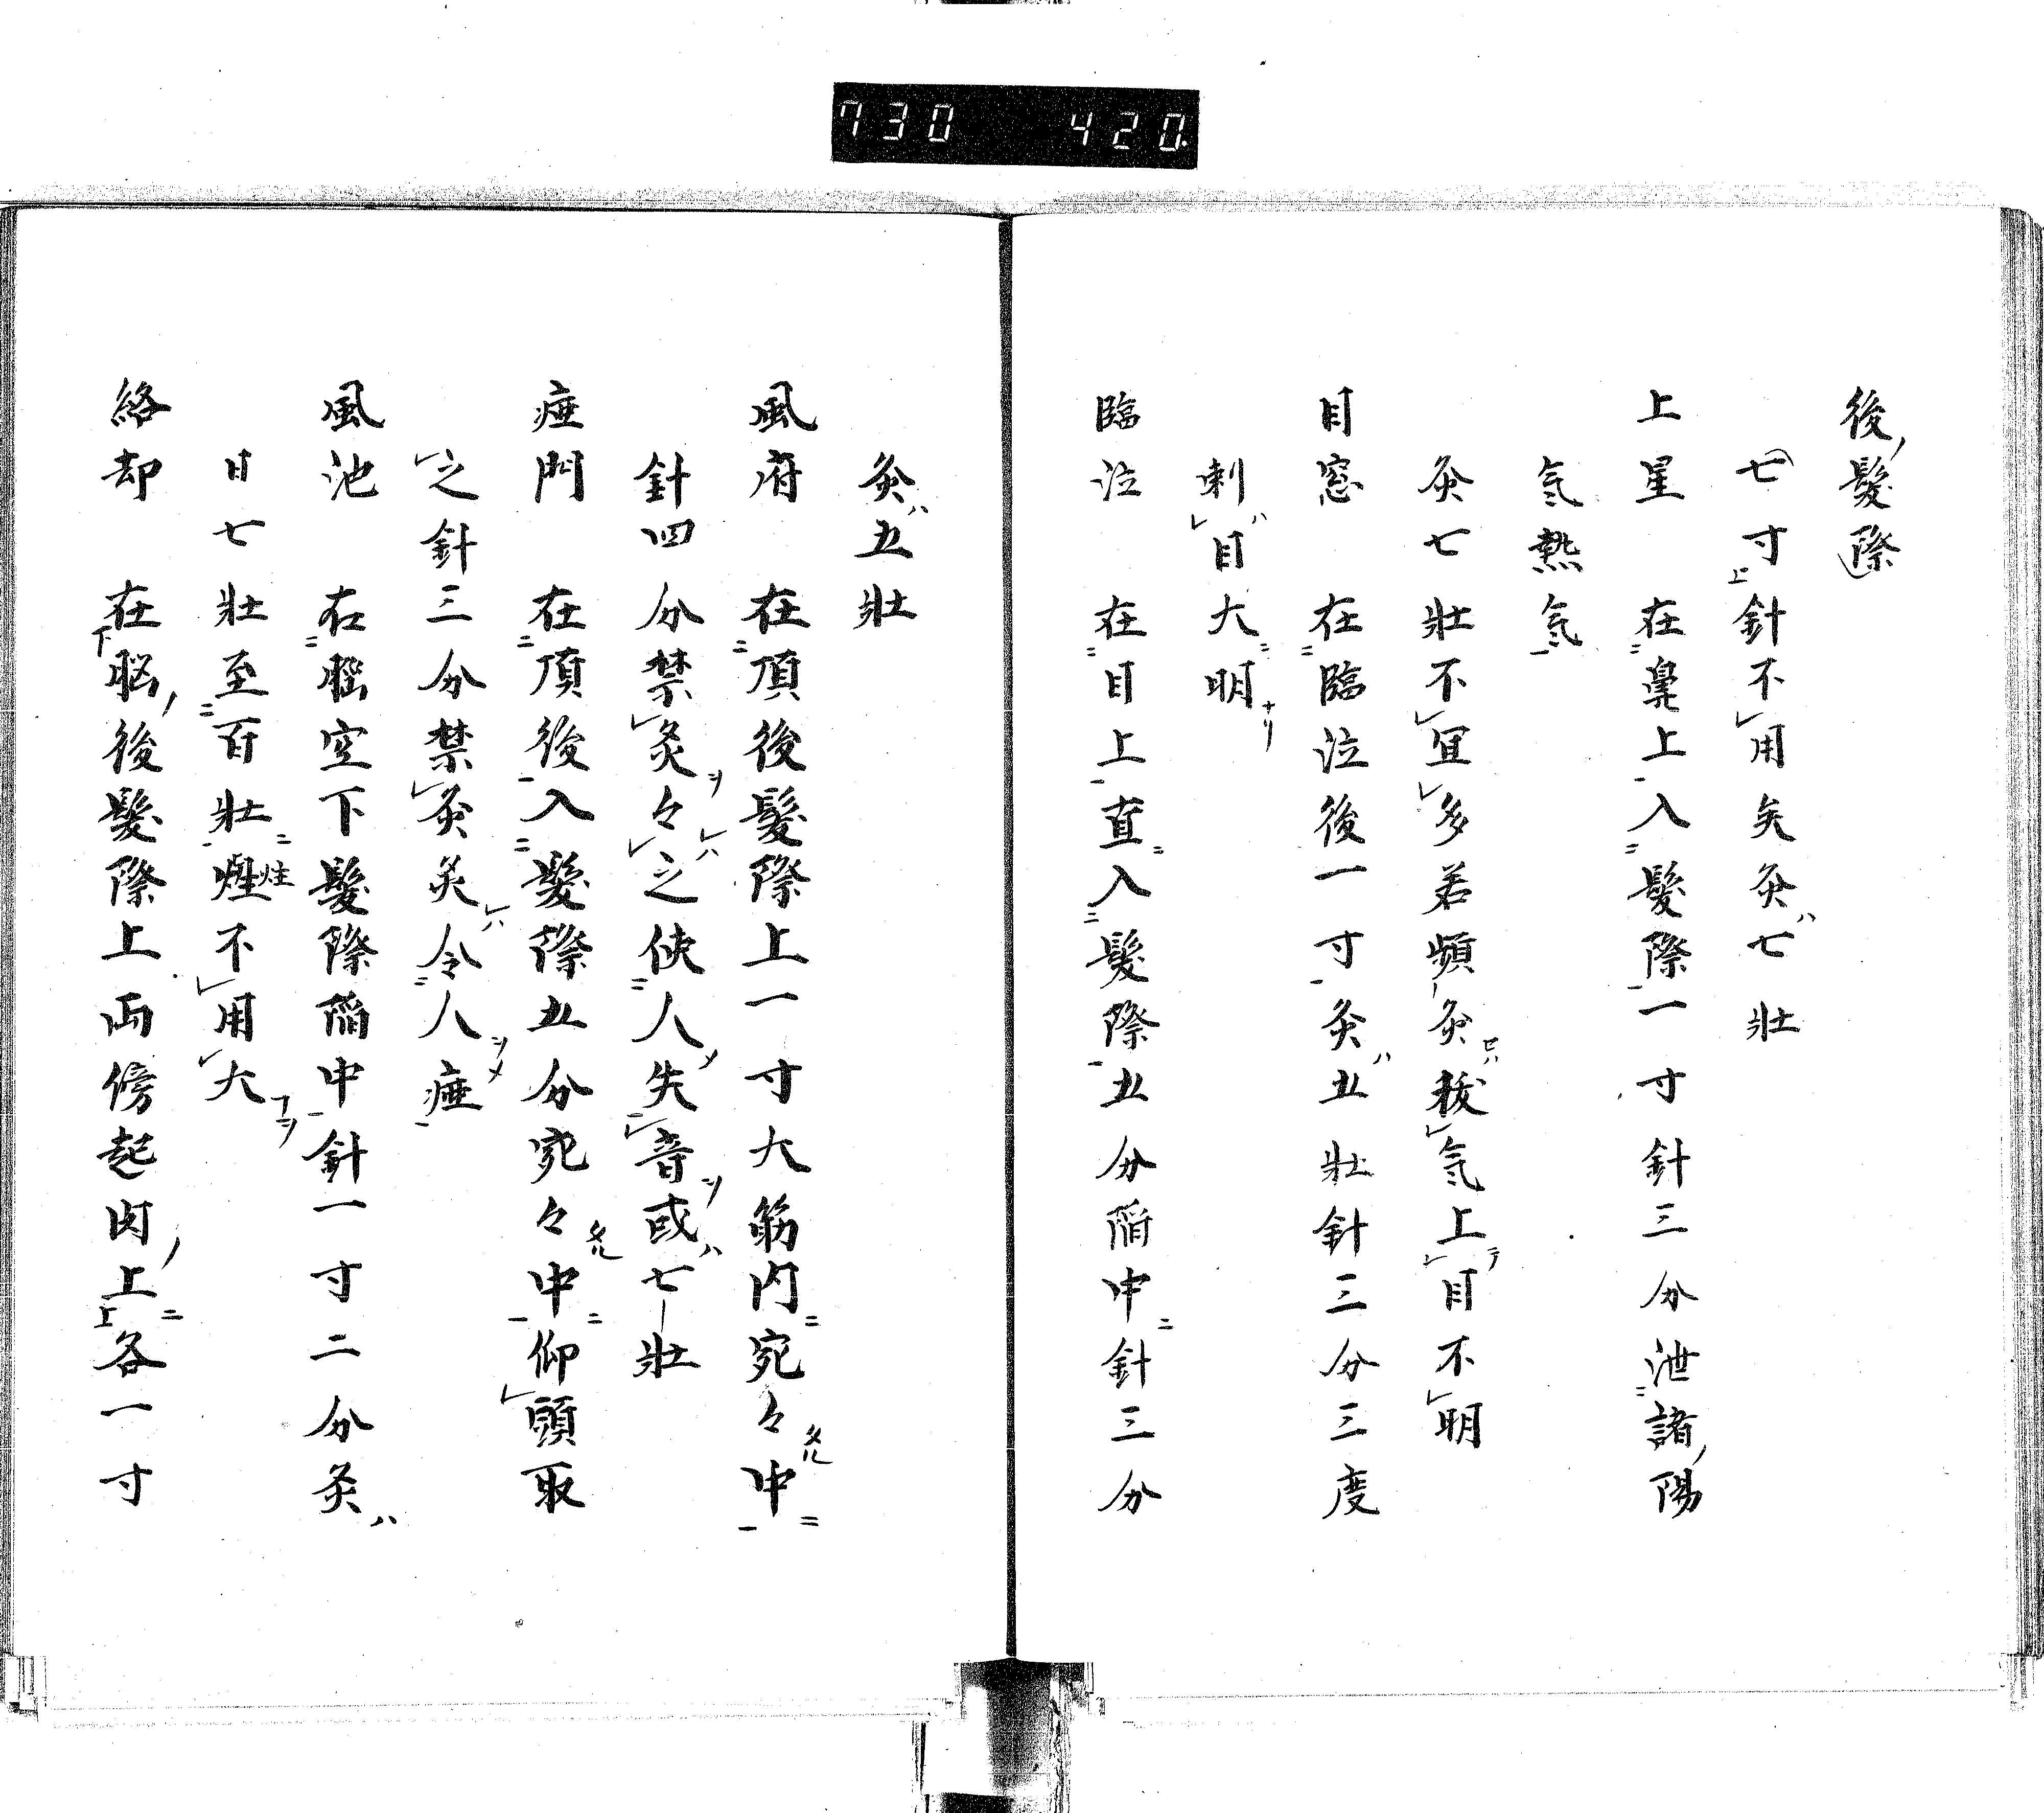 730 420
後髮際
七寸針不用矣灸七壮
上星 在鼻上入髮際一寸針三分泄諸陽
氣熱氣
灸七壮不宜多若頻灸拔氣上目不明
目窓 在臨泣後一寸灸五壮針三分三度
刺目大明
臨泣 在目上直入髮際五分陷中針三分
灸五壮
風府 在頂後髮際上一寸大筋内宛々中
針四分禁灸々之使人失音或七壮
瘂門 在頂後入髮際五分宛々中仰頭取
之針三分禁灸灸令人瘂
風池 在腦空下髮際陷中針一寸二分灸
日七壮至百壮炷不用大
絡却 在脳後髮際上両傍起肉上各一寸